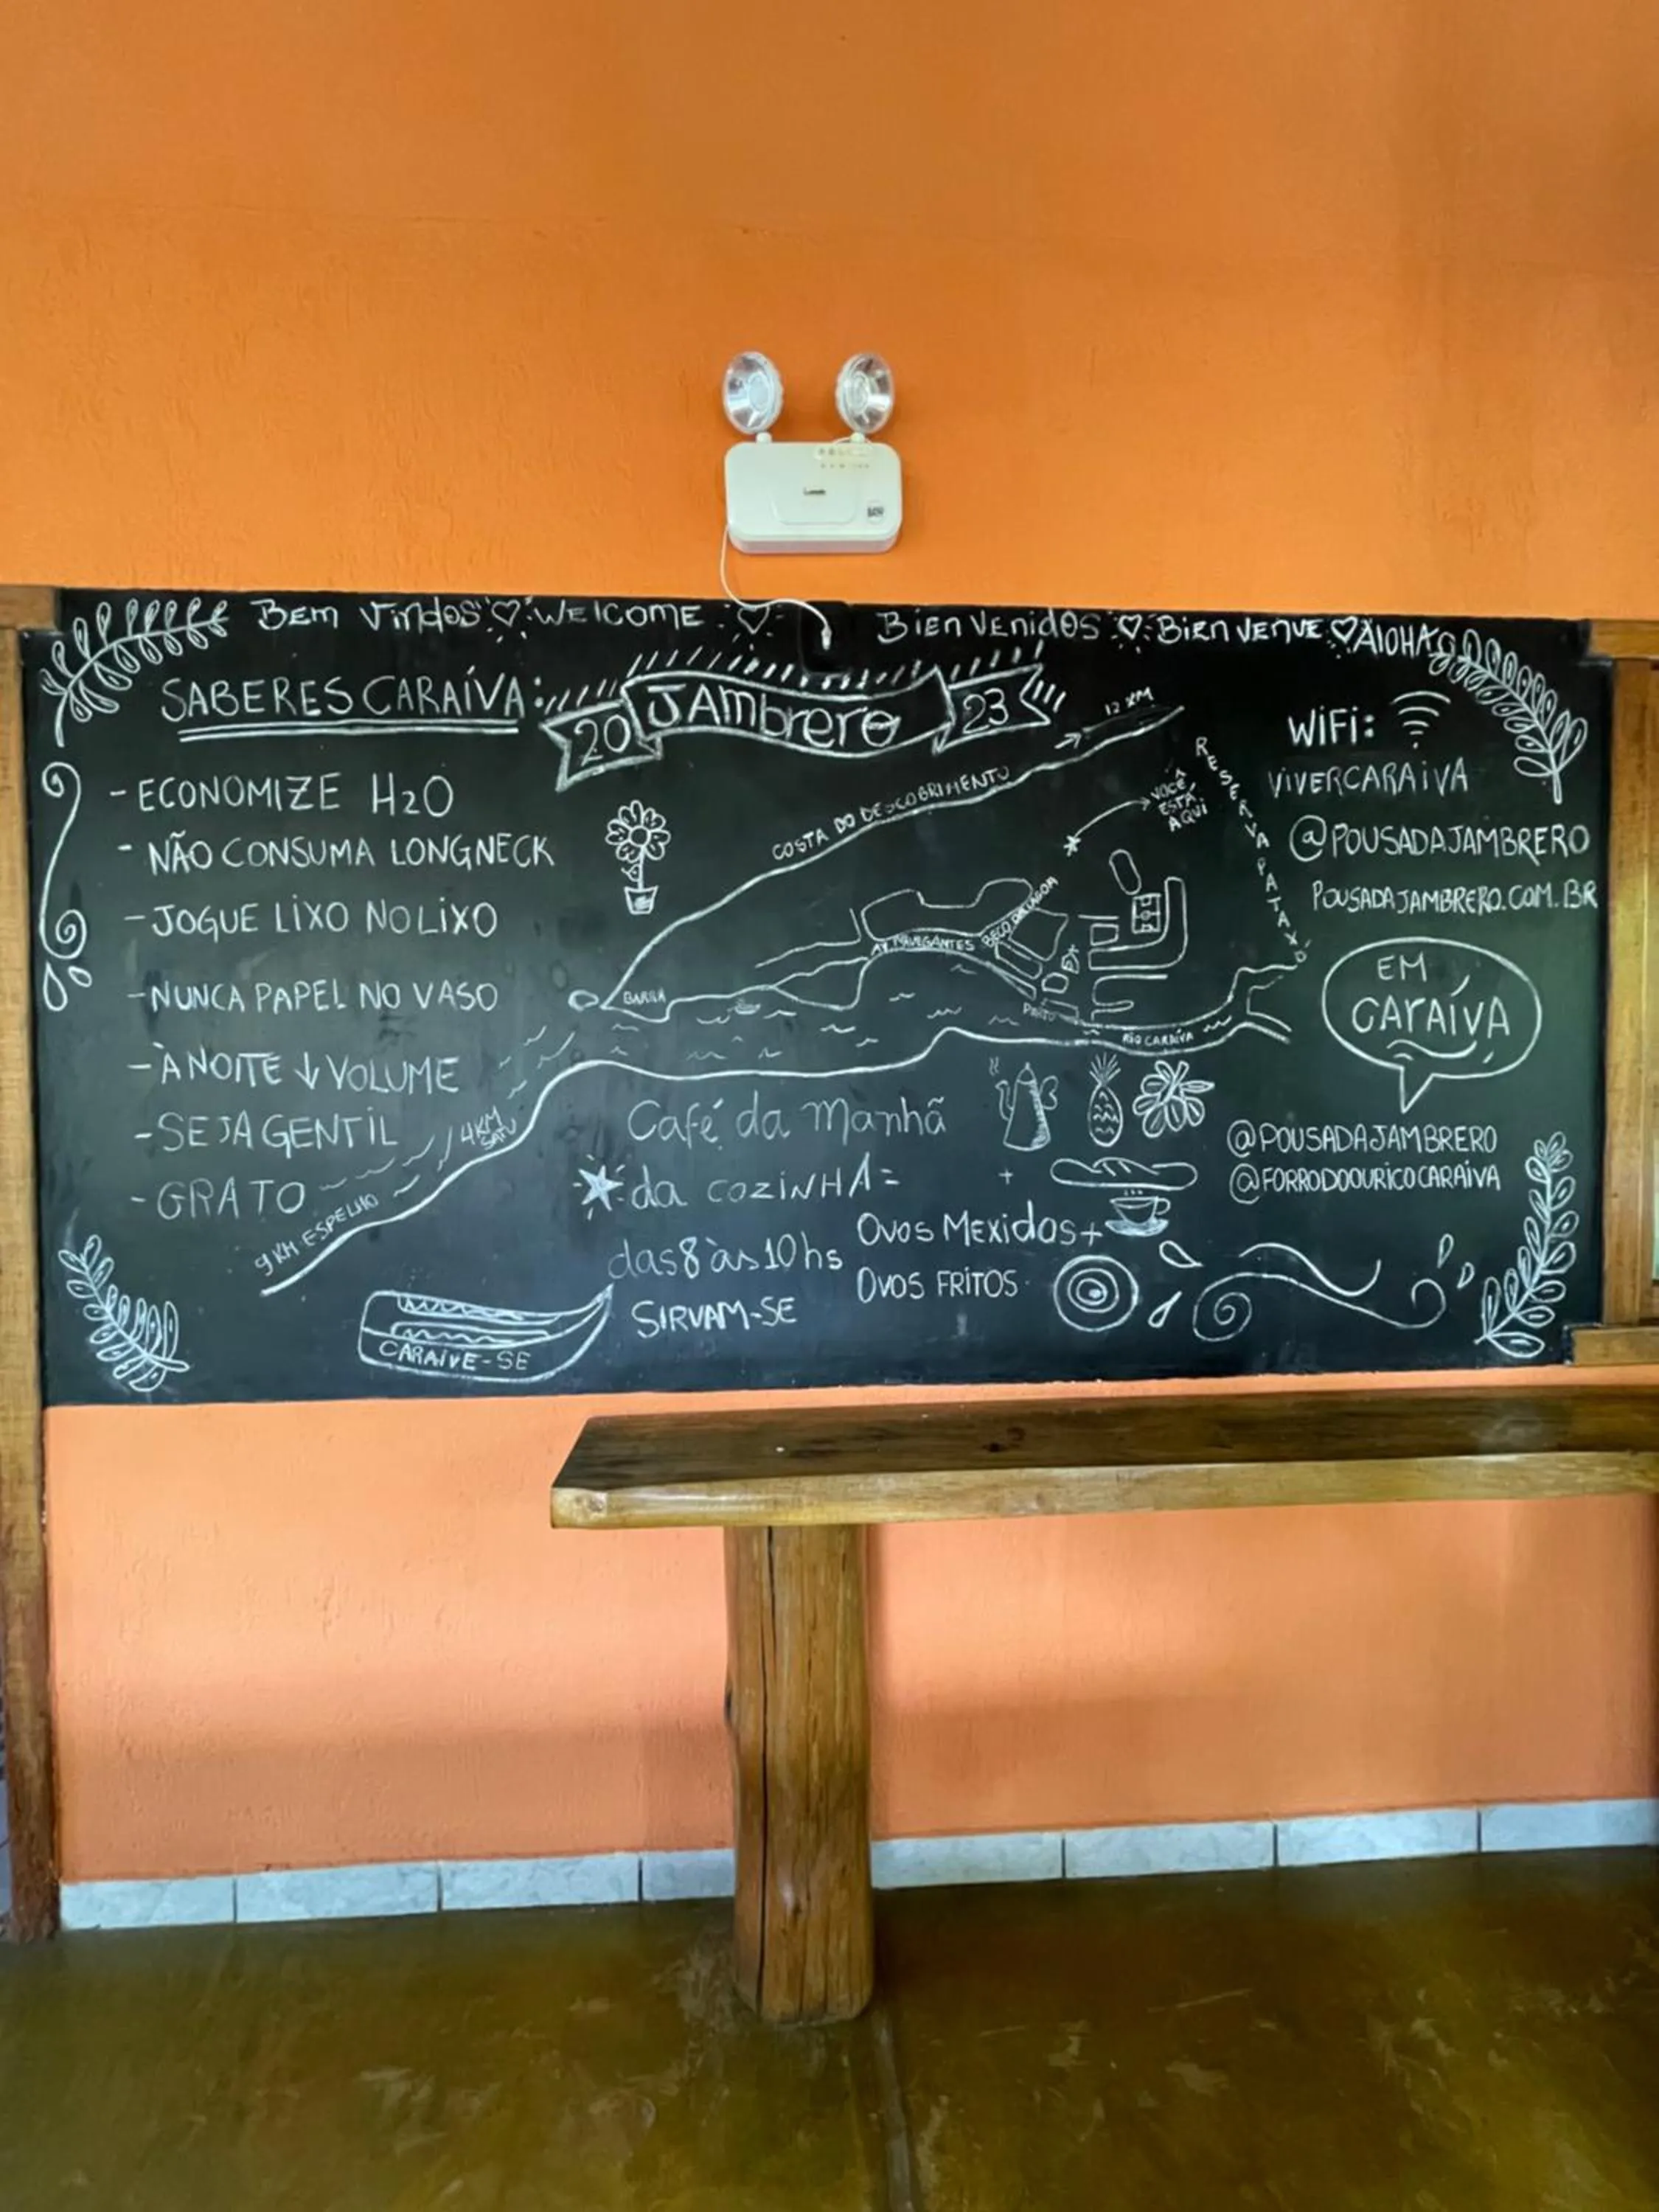 Bem Vindos WELCOME BienVenidos BienVenue ALOHA
SABERES CARAÍVA:
- ECONOMIZE H2O
- NÃO CONSUMA LONGNECK
- JOGUE LIXO NO LIXO
- NUNCA PAPEL NO VASO
- À NOITE ↓ VOLUME
- SEJA GENTIL
- GRATO
20 JAMbrero 23
12 KM
COSTA DO DESCOBRIMENTO
VOCÊ
ESTÁ
AQUI
RESERVA PATAXÓ
BECO DA LAGOA
AV. NAVEGANTES
BARRA
PORTO
RIO CARAÍVA
4 KM
SATU
9 KM ESPELHO
CARAÍVE-SE
Café da Manhã
da COZINHA =
das 8 às 10hs
SIRVAM-SE
+
OVOS MEXIDOS +
OVOS FRITOS
WiFi:
VIVERCARAIVA
@POUSADAJAMBRERO
POUSADAJAMBRERO.COM.BR
EM
CARAÍVA
@POUSADAJAMBRERO
@FORRODOOURICOCARAIVA